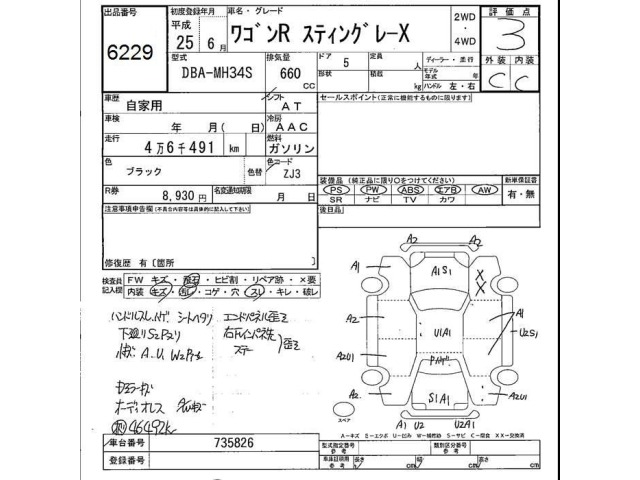 出品番号
6229
初度登録年月
平成
25年 6月
車名・グレード
ワゴンR スティングレーX
2WD
・
4WD
評価点
3
外装 内装
C C
型式
DBA-MH34S
排気量
660
CC
ドア
5
形状
定員
人
積載
kg
ディーラー・並行
モデル年式 年
ハンドル 左・右
車歴
自家用
シフト
AT
セールスポイント(正常に機能するものに限ります)
車検
年 月( 日)
冷房
AAC
走行
4万6千491 km
燃料
ガソリン
色
ブラック
色替
色コード
ZJ3
R券
8,930円
名変通知期限
月 日
装備品 (純正品に限り○をつけてください)
PS PW ABS エアB AW
SR ナビ TV カワ
新車保証書
有・無
注意事項申告欄(不具合内容等は具体的に記入して下さい)
後日品
修復歴 有〔箇所 〕
検査員記入欄
FW キズ・飛石・ヒビ割・リペア跡・×要
内装 キズ・汚レ・コゲ・穴・スレ・キレ・破レ
ハンドルスレ
シートヘタリ
下廻りS2P2リ
A.U W2
オーディオレス
46492k
A2 A2
A1 A1S1 X
X
A2 U1A1 A1
U2S1
A2U1
A2 S1A1 A2U1
スペア
A1 U2 U2A1
A-キズ E-エクボ U-凹ミ W-補修跡 S-サビ C-腐食 XX-交換済
車台番号
735826
型式指定番号
参考
類別区分番号
参考
登録番号
車体証明用
参考
長さ cm
幅 cm
高さ cm